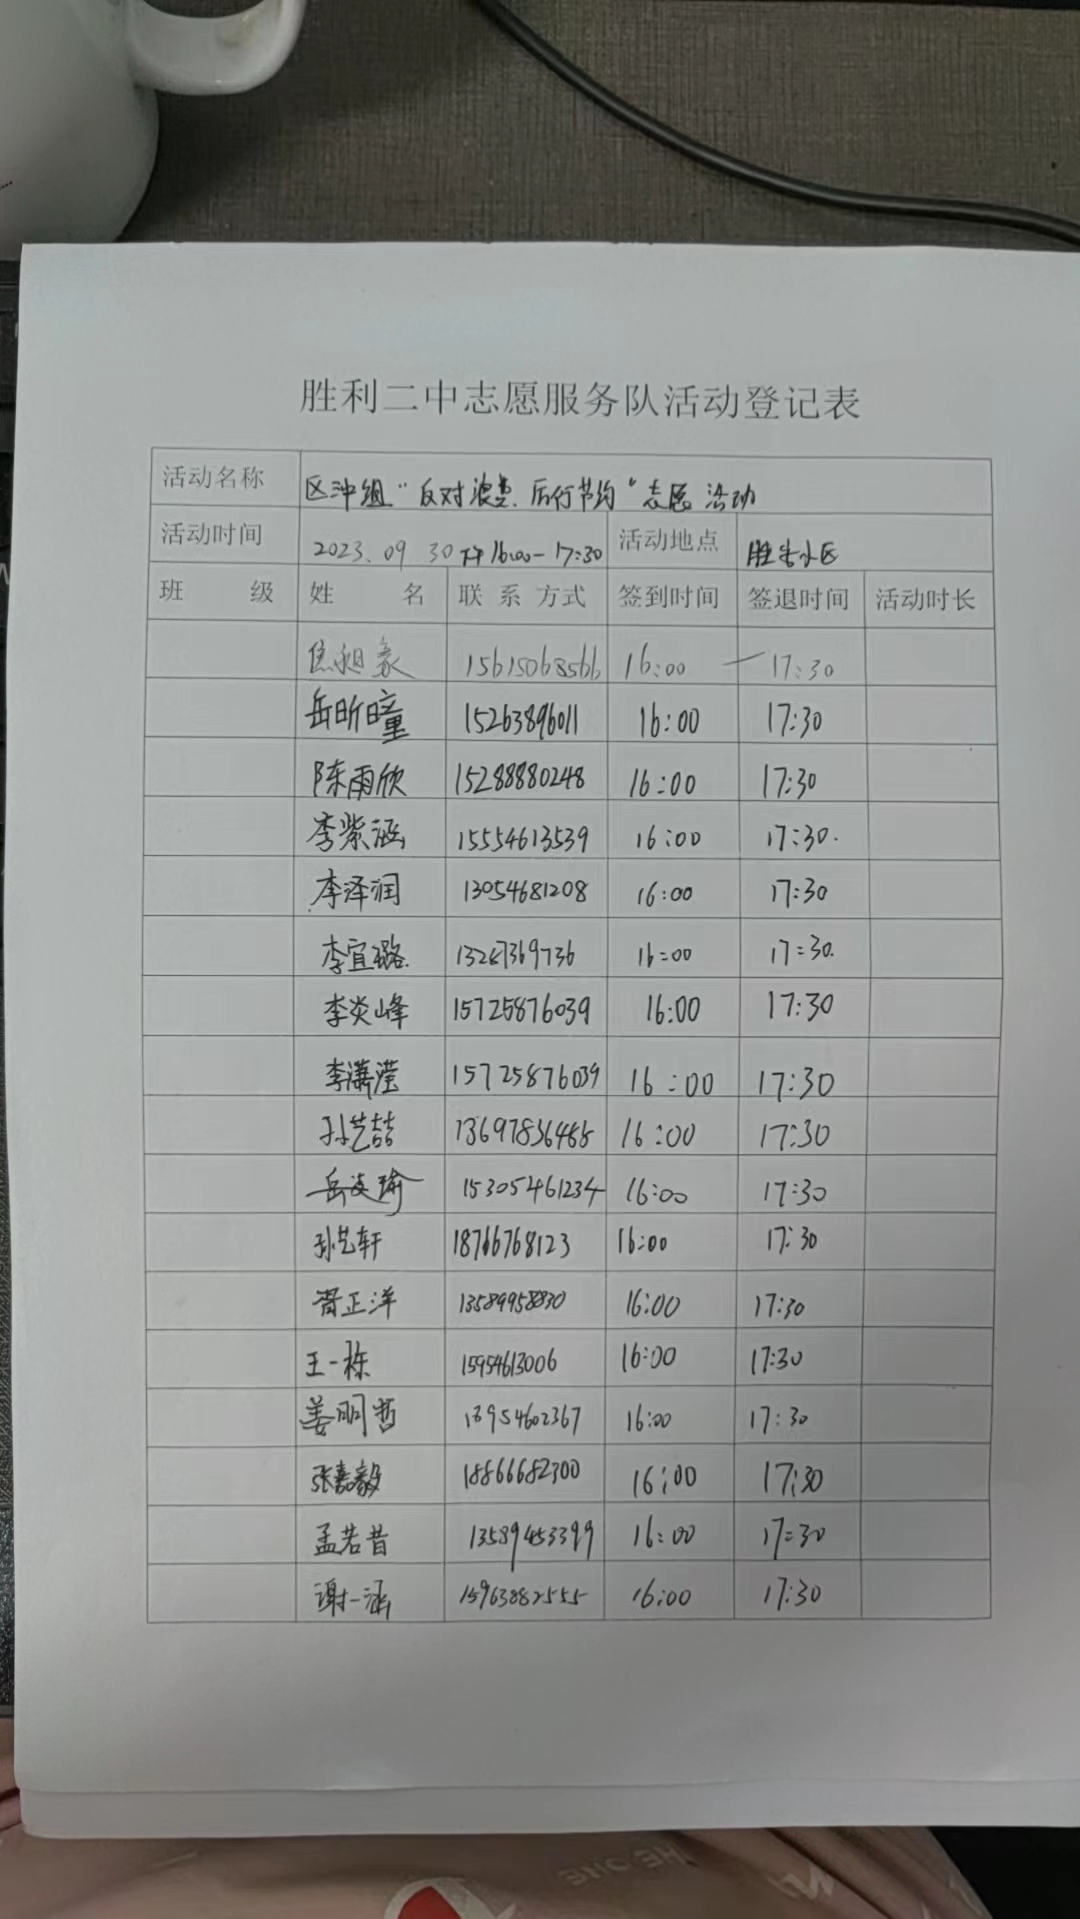 胜利二中志愿服务队活动登记表
活动名称 区冲组“反对浪费、厉行节约”志愿活动
活动时间 2023.09 30 下午16:00-17:30 活动地点 胜生小区
班 级 姓 名 联 系 方式 签到时间 签退时间 活动时长
15615068566 16:00 — 17:30
岳昕曈 15263896011 16:00 17:30
陈雨欣 15288880248 16:00 17:30
李紫涵 15554613539 16:00 17:30.
李泽润 13054681208 16:00 17:30
李宜璐. 13267369736 16:00 17:30.
李炎峰 15725876039 16:00 17:30
李潇滢 15725876039 16:00 17:30
孙艺喆 13697836488 16:00 17:30
岳凌瑜 15305461234 16:00 17:30
孙艺轩 18766768123 16:00 17:30
胥正洋 13589958830 16:00 17:30
王一栋 15954613006 16:00 17:30
姜明哲 18954602367 16:00 17:30
张嘉毅 18866682300 16:00 17:30
孟若昔 13589453399 16:00 17:30
谢一涵 15963882555 16:00 17:30